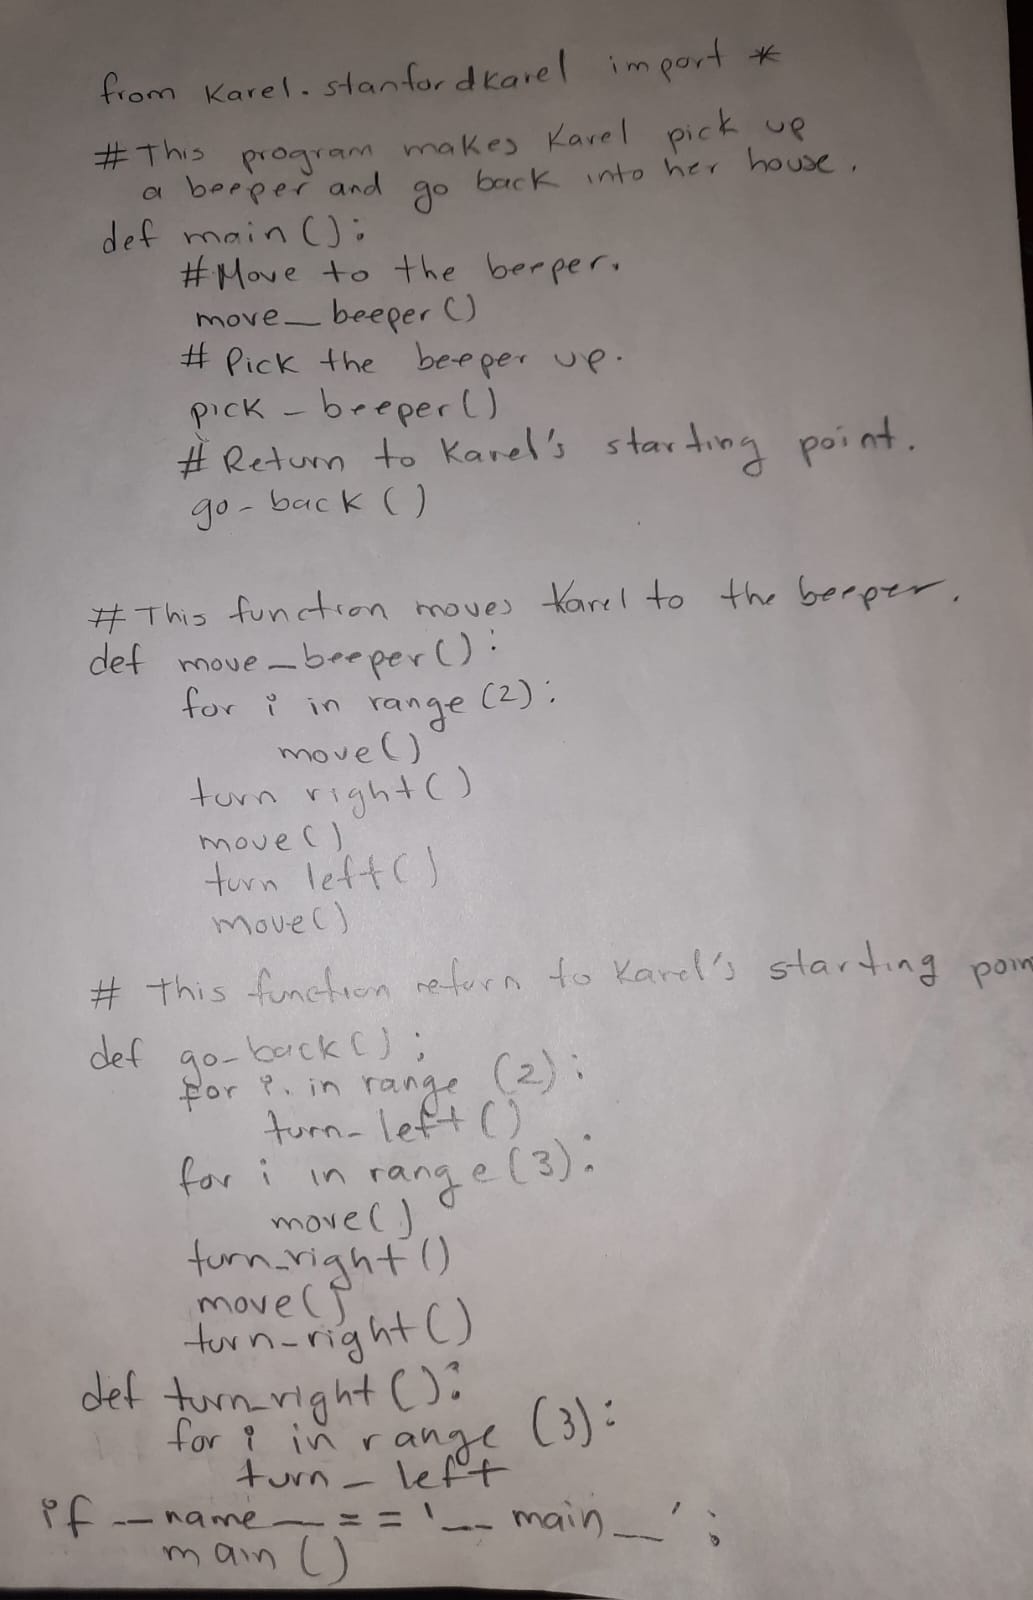 from Karel.stanfordkarel import *
#This program makes Karel pick up
a beeper and go back into her house.
def main():
#Move to the beeper.
move_beeper()
# Pick the beeper up.
pick_beeper()
# Return to Karel's starting point.
go-back()
# This function moves Karel to the beeper.
def move_beeper():
for i in range(2):
move()
turn right()
move()
turn left()
move()
# This function return to Karel's starting poin
def go-back():
for i in range (2):
turn-left()
for i in range(3):
move()
turn_right()
move()
turn-right()
def turn_right():
for i in range (3):
turn_left
if __name__ == '__main__':
main()